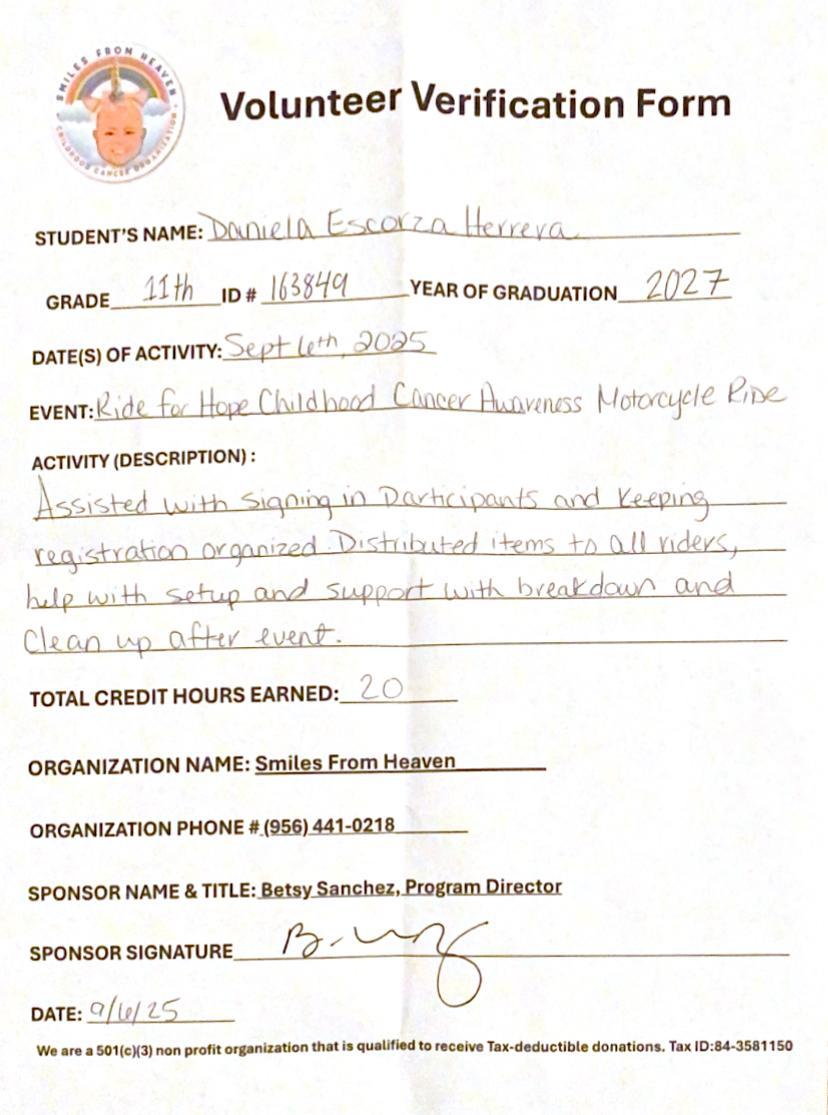 SMILES FROM HEAVEN
CHILDHOOD CANCER ORGANIZATION
Volunteer Verification Form
STUDENT'S NAME: Daniela Escorza Herrera
GRADE 11th ID # 163849 YEAR OF GRADUATION 2027
DATE(S) OF ACTIVITY: Sept 6th, 2025
EVENT: Ride for Hope Childhood Cancer Awareness Motorcycle Ride
ACTIVITY (DESCRIPTION) :
Assisted with signing in Participants and Keeping
registration organized. Distributed items to all riders,
help with setup and support with breakdown and
Clean up after event.
TOTAL CREDIT HOURS EARNED: 20
ORGANIZATION NAME: Smiles From Heaven
ORGANIZATION PHONE # (956) 441-0218
SPONSOR NAME & TITLE: Betsy Sanchez, Program Director
SPONSOR SIGNATURE
DATE: 9/6/25
We are a 501(c)(3) non profit organization that is qualified to receive Tax-deductible donations. Tax ID:84-3581150